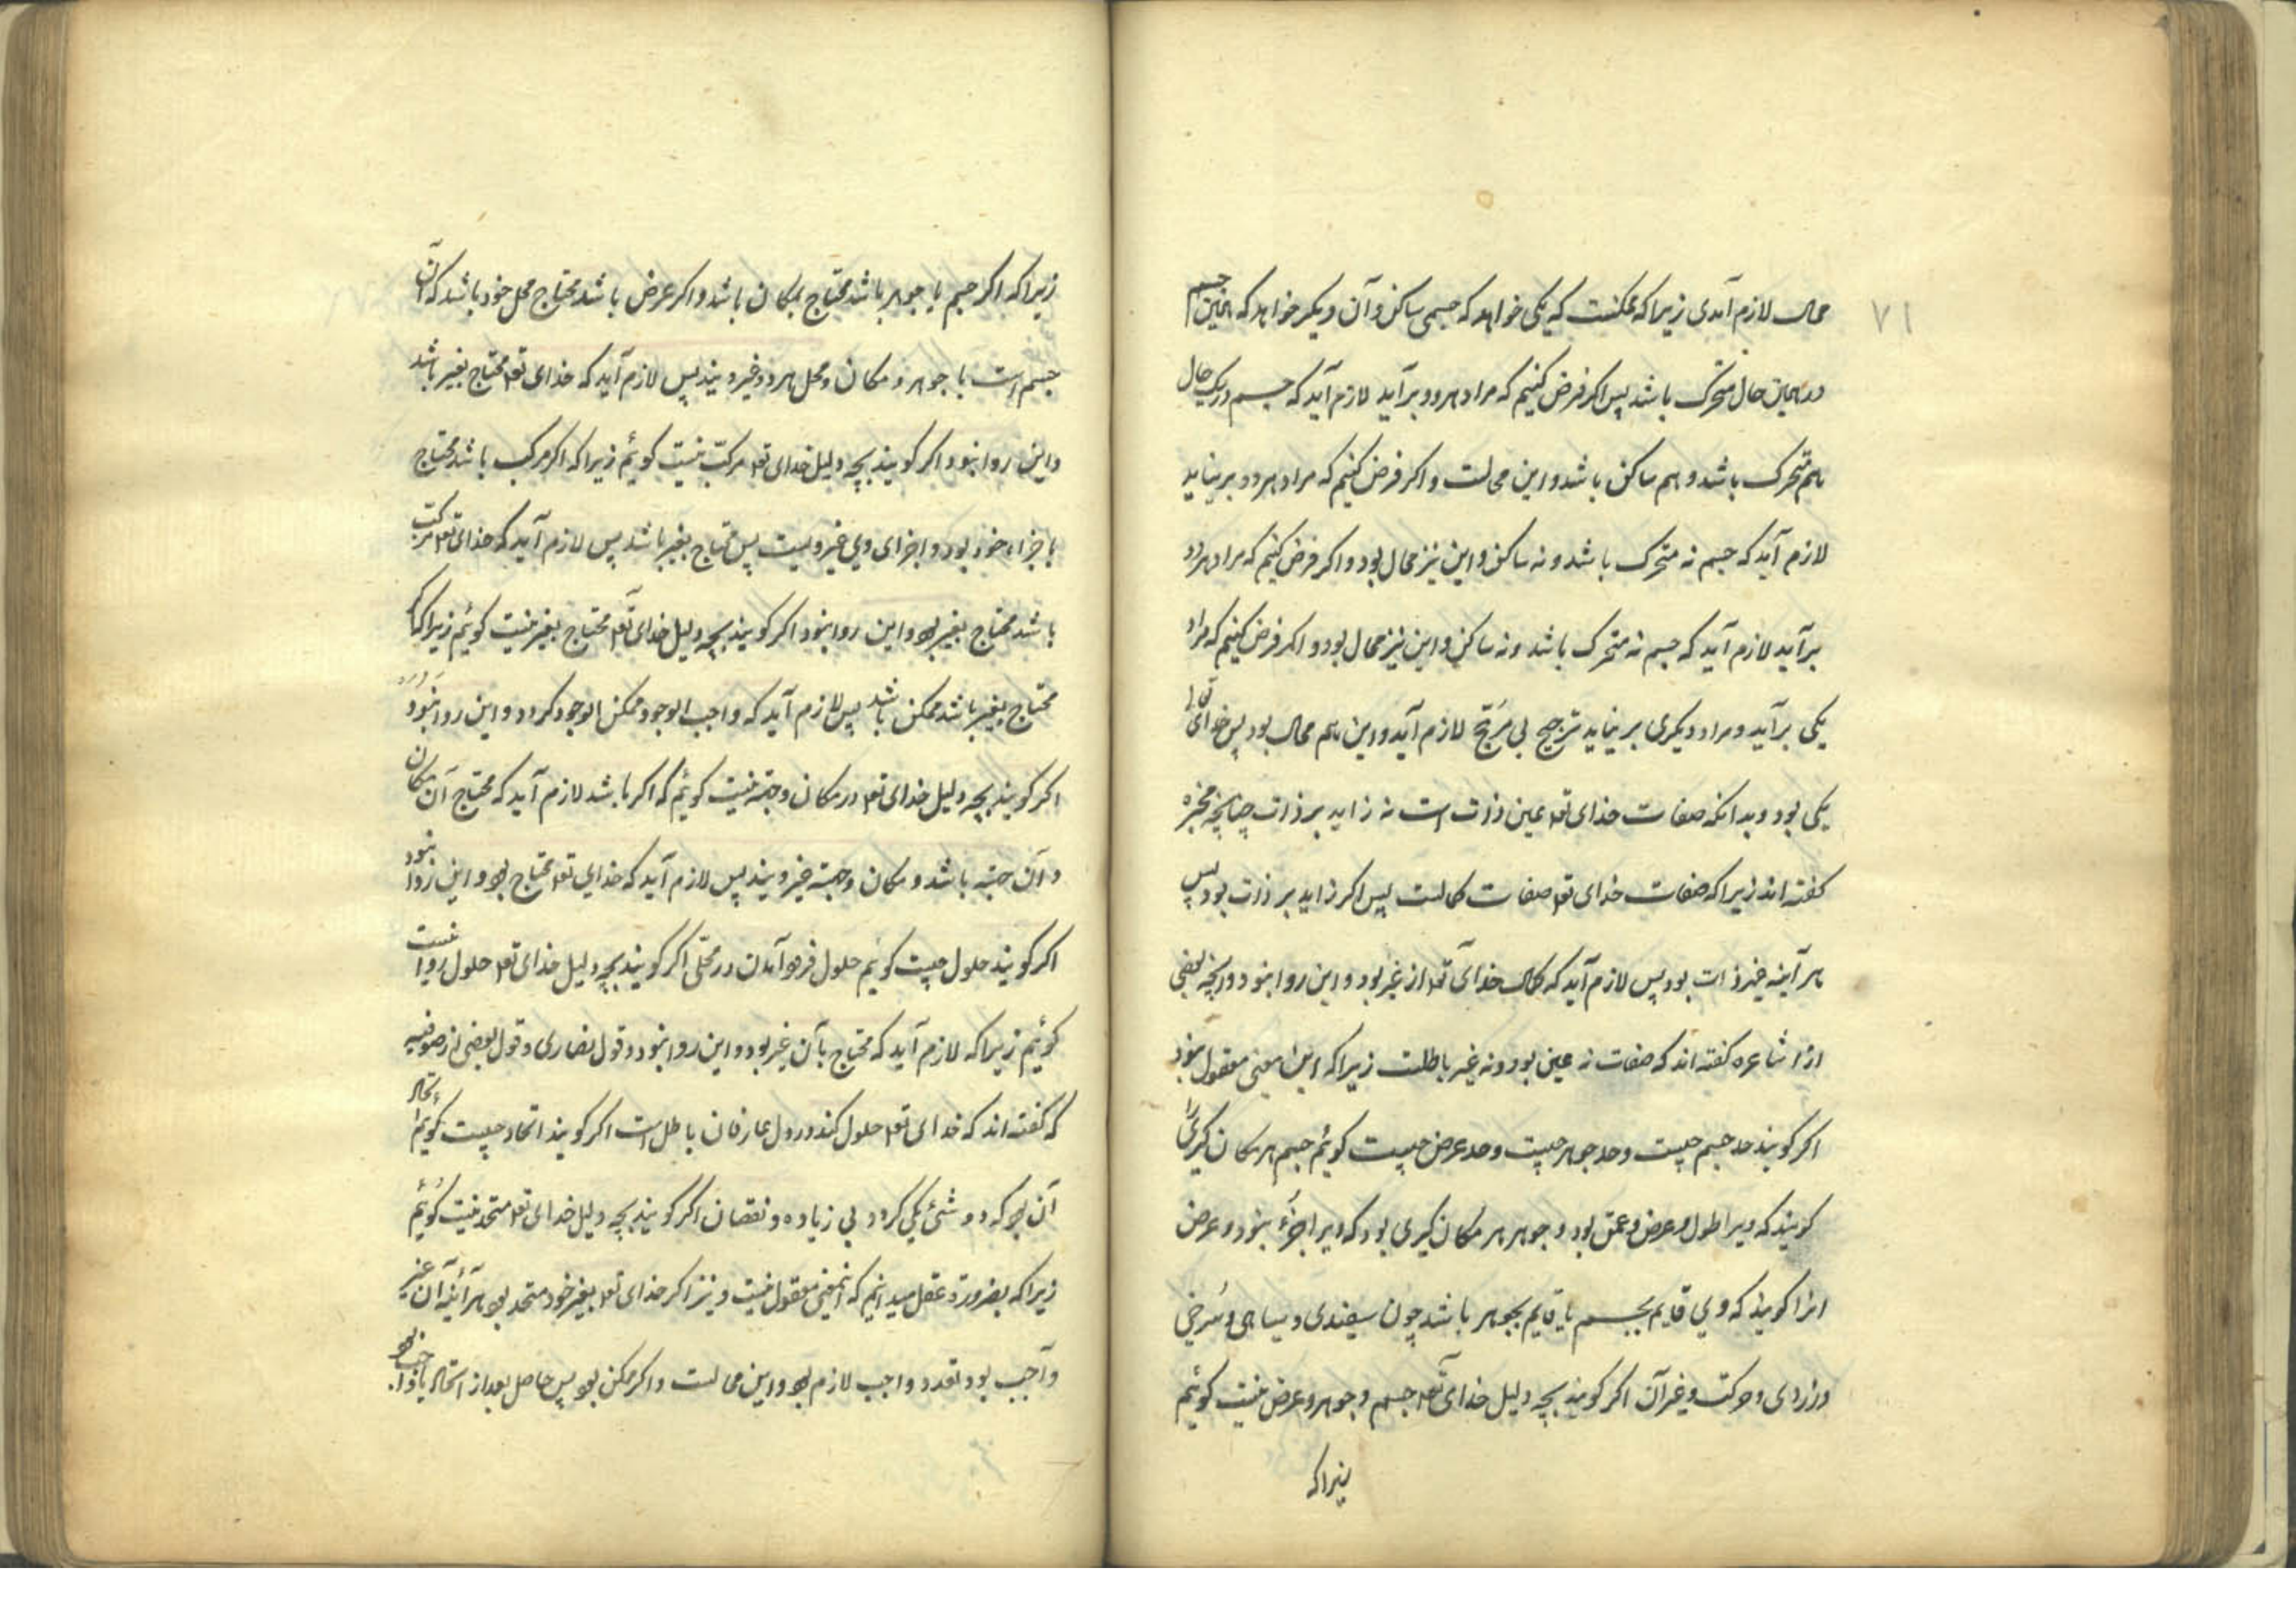 ۷۱
محال لازم آمدی زیرا که ممکنست که یکی خواهد که جسمی ساکن و آن دیگر خواهد که همین جسم
در همان حال متحرک باشد پس اگر فرض کنیم که مراد هر دو برآید لازم آید که جسم در یک حال
هم متحرک باشد و هم ساکن باشد و این محالست و اگر فرض کنیم که مراد هر دو بر نیاید
لازم آید که جسم نه متحرک باشد و نه ساکن و این نیز محال بود و اگر فرض کنیم که مراد هر دو
برآید لازم آید که جسم نه متحرک باشد و نه ساکن و این نیز محال بود و اگر فرض کنیم که مراد
یکی برآید و مراد دیگری بر نیاید ترجیح بی مرجّح لازم آید و این هم محال بود پس خدای تعالی
یکی بود و بدانکه صفات خدای تعا عین ذات است نه زاید بر ذات چنانچه
گفته اند زیرا که صفات خدای تعا صفات کمالست پس اگر زاید بر ذات بود پس
هر آینه غیر ذات بود پس لازم آید که کمال خدای تعا از غیر بود و این روا نبود و آنچه بعضی
از اشاعره گفته اند که صفات نه عین بود و نه غیر باطلست زیرا که این معنی معقول نبود
اگر گویند حد جسم چیست و حد جوهر چیست و حد عرض چیست گوئیم جسم هر مکان گیری را
گویند که ویرا طول و عرض و عمق بود و جوهر هر مکان گیری بود که ویرا جزء نبود و عرض
انرا گویند که وی قایم بجسم یا قایم بجوهر باشد چون سفیدی و سیاهی و سرخی
و زردی و حرکت و غیر آن اگر گویند بچه دلیل خدای تعا جسم و جوهر و عرض نیست گوئیم
زیرا که
زیرا که اگر جسم یا جوهر باشد محتاج بمکان باشد و اگر عرض باشد محتاج محل خود باشد که آن
جسم است یا جوهر و مکان و محل هر دو غیر ویند پس لازم آید که خدای تعا محتاج بغیر باشد
و این روا نبود اگر گویند بچه دلیل خدای تعا مرکب نیست گوئیم زیرا که اگر مرکب باشد محتاج
باجزاء خود بود و اجزای وی غیر ویست پس محتاج بغیر باشد پس لازم آید که خدای تعا مرکب
باشد محتاج بغیر بود و این روا نبود اگر گویند بچه دلیل خدای تعا محتاج بغیر نیست گوئیم زیرا که اگر
محتاج بغیر باشد ممکن باشد پس لازم آید که واجب الوجود ممکن الوجود گردد و این روا نبود
اگر گویند بچه دلیل خدای تعا در مکان و جهة نیست گوئیم که اگر باشد لازم آید که محتاج آن مکان
و آن جهة باشد و مکان و جهة غیر ویند پس لازم آید که خدای تعا محتاج بود و این روا نبود
اگر گویند حلول چیست گوئیم حلول فرود آمدن در محلی اگر گویند بچه دلیل خدای تعا حلول روا نیست
گوئیم زیرا که لازم آید که محتاج بآن غیر بود و این روا نبود و قول نصاری و قول بعضی از صوفیه
که گفته اند که خدای تعا حلول کند در دل عارفان باطل است اگر گویند اتحاد چیست گوئیم اتحاد
آن بود که دو شئ یکی گردد بی زیاده و نقصان اگر گویند بچه دلیل خدای تعا متحد نیست گوئیم
زیرا که بضرورة عقل میدانیم که اینمعنی معقول نیست و نیز اگر خدای تعا بغیر خود متحد بود هر آئینه آن غیر
واجب بود تعدد واجب لازم بود و این محالست و اگر ممکن بود پس حاصل بعد از اتحاد یا واجب بود